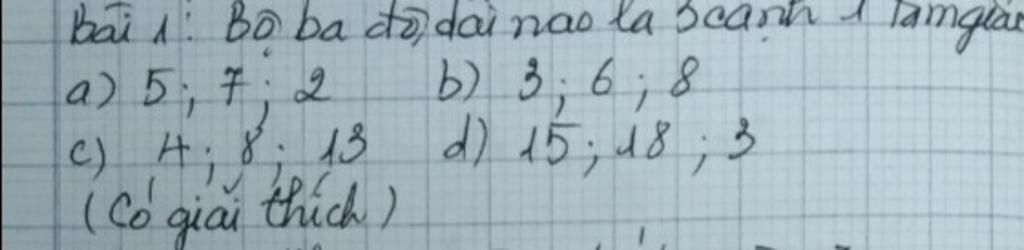 Bài 1: Bộ ba độ dài nào là 3 cạnh 1 tam giác
a) 5; 7; 2 b) 3; 6; 8
c) 4; 8; 13 d) 15; 18; 3
(Có giải thích)